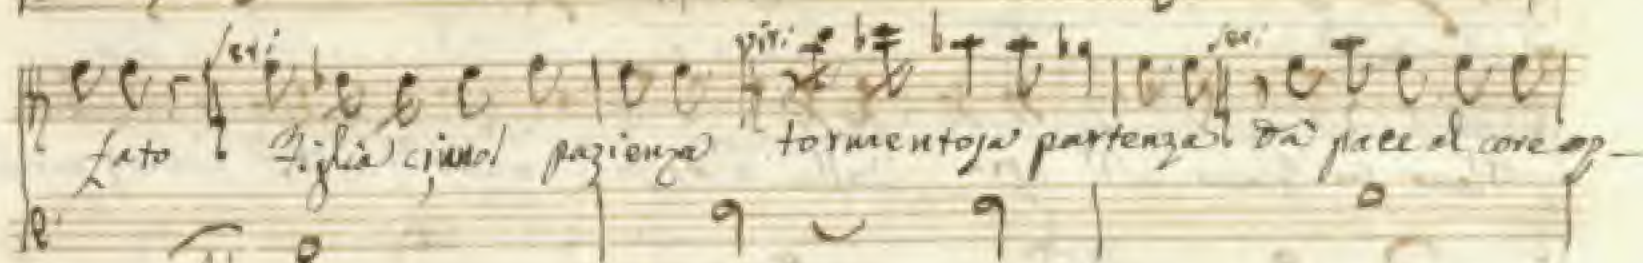 fato Figlia ci vuol pazienza tormentosa partenza da pace al core op-